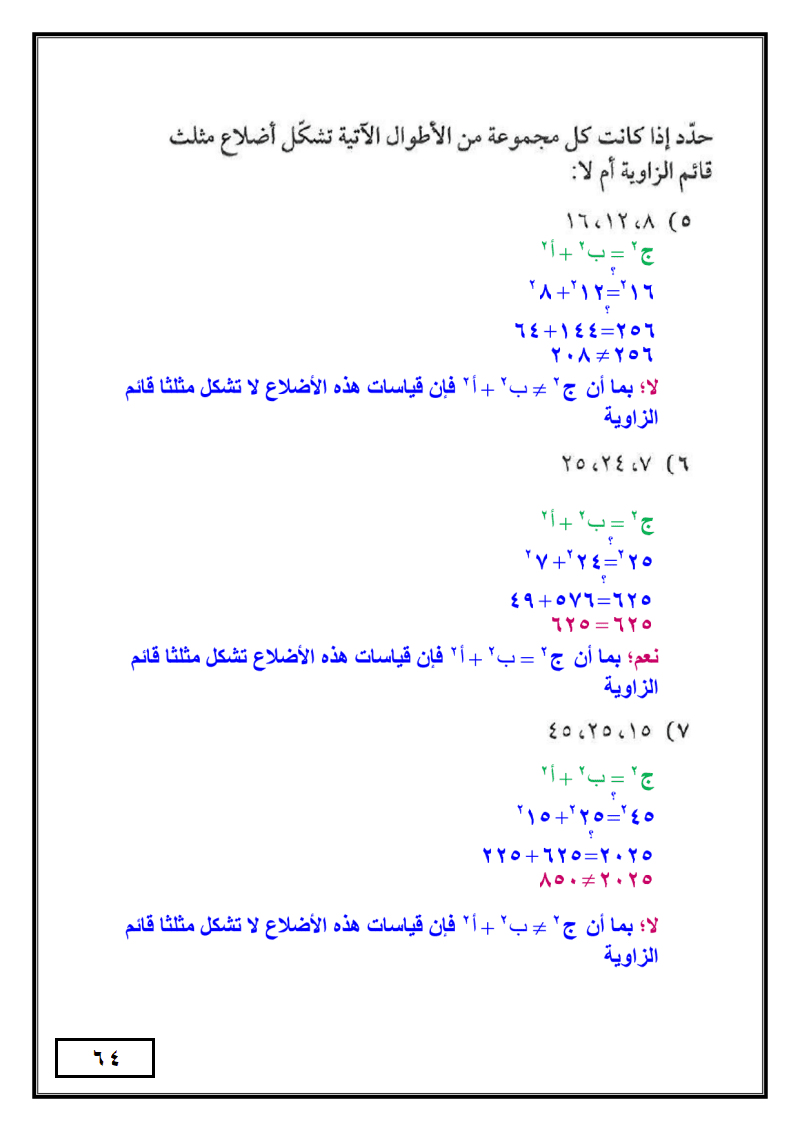 حدّد إذا كانت كل مجموعة من الأطوال الآتية تشكّل أضلاع مثلث
قائم الزاوية أم لا:
٥) ٨، ١٢، ١٦
ج٢ = ب٢ + أ٢
؟
١٦٢=١٢٢+٨٢
؟
٢٥٦=١٤٤+٦٤
٢٥٦ ≠ ٢٠٨
لا؛ بما أن ج٢ ≠ ب٢ + أ٢ فإن قياسات هذه الأضلاع لا تشكل مثلثا قائم
الزاوية
٦) ٧، ٢٤، ٢٥
ج٢ = ب٢ + أ٢
؟
٢٥٢=٢٤٢+٧٢
؟
٦٢٥=٥٧٦+٤٩
٦٢٥ = ٦٢٥
نعم؛ بما أن ج٢ = ب٢ + أ٢ فإن قياسات هذه الأضلاع تشكل مثلثا قائم
الزاوية
٧) ١٥، ٢٥، ٤٥
ج٢ = ب٢ + أ٢
؟
٤٥٢=٢٥٢+١٥٢
؟
٢٠٢٥=٦٢٥+٢٢٥
٢٠٢٥ ≠ ٨٥٠
لا؛ بما أن ج٢ ≠ ب٢ + أ٢ فإن قياسات هذه الأضلاع لا تشكل مثلثا قائم
الزاوية
٦٤